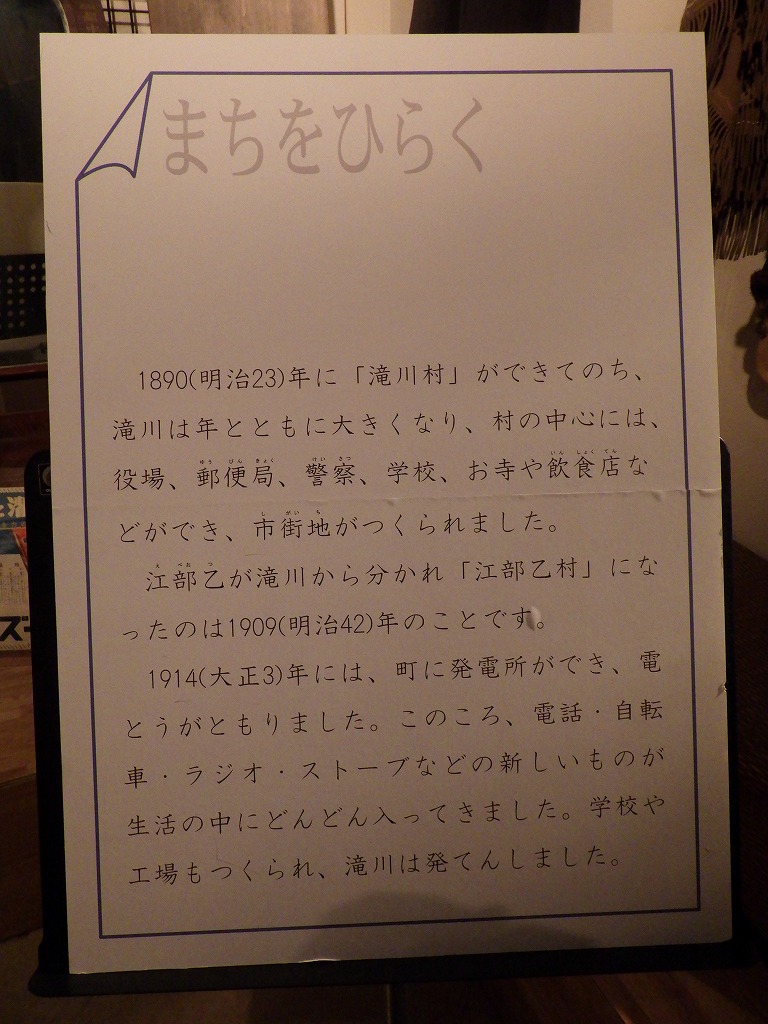 まちをひらく
1890(明治23)年に「滝川村」ができてのち、
滝川は年とともに大きくなり、村の中心には、
役場、郵便局、警察、学校、お寺や飲食店な
どができ、市街地がつくられました。
江部乙が滝川から分かれ「江部乙村」にな
ったのは1909(明治42)年のことです。
1914(大正3)年には、町に発電所ができ、電
とうがともりました。このころ、電話・自転
車・ラジオ・ストーブなどの新しいものが
生活の中にどんどん入ってきました。学校や
工場もつくられ、滝川は発てんしました。